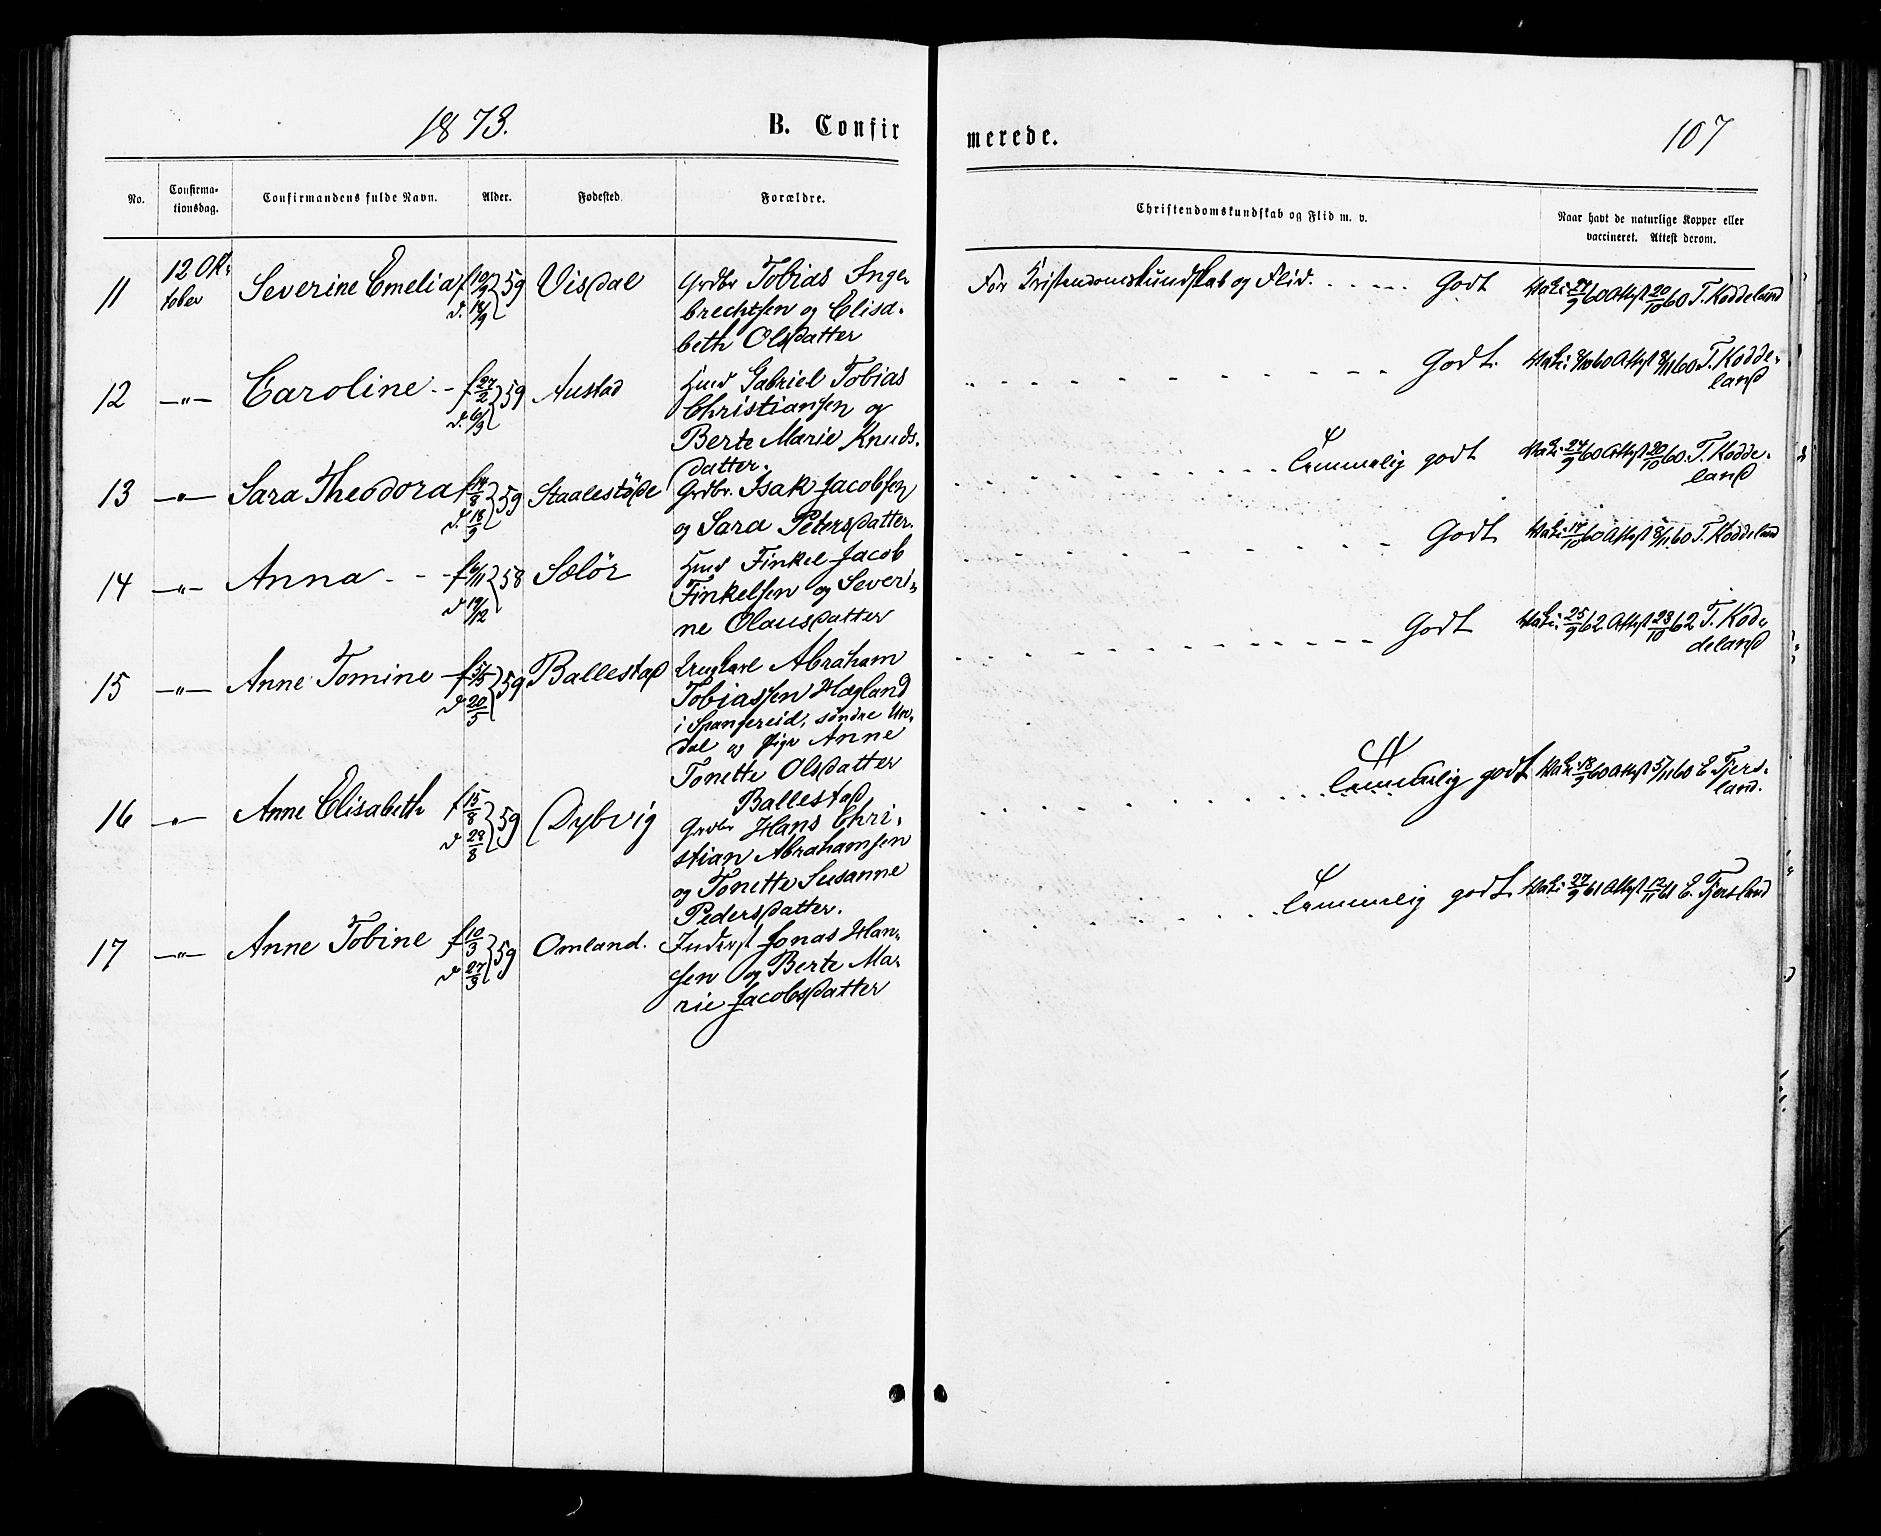 1873.
B. Confir
merede.
107
No.
Confirma-
tionsdag.
Confirmandens fulde Navn.
Alder.
Fødested
Forældre.
Christendomskundskab og Flid m. v.
Naar havt de naturlige Kopper eller
vaccineret. Attest derom.
11 12 Ok- Severine Emelia f 10/9 59 Visdal Grdbr Tobias Inge-
tober d. 14/9 brechtsen og Elisa-
beth Olsdatter
For Kristendomskundskab og Flid. . . . . . Godt Vak: 27/9 60 Attest 20/10 60 T. Koddeland
12 —"— Caroline - - f 27/2 59 Austad Hmd Gabriel Tobias
d. 6/3 Christiansen og
Berte Marie Knuds-
datter.
Godt. 60 Attest 8/11 60 T. Kodde-
land
13 —"— Sara Theodora f 14/8 59 Staalestøde Grdbr. Isak Jacobsen
d. 18/9 og Sara Petersdatter.
Temmelig godt Vak: 24/9 60 Attest 20/10 60 T. Kodde-
land
14 —"— Anna - - f 6/11 58 Sælør Hmd Finkel Jacob
d 19/12 Finkelsen og Severi-
ne Olausdatter
Godt Vak: 17/10 60 Attest 8/11 60 T. Koddeland
15 —"— Anne Tomine f 5/5 59 Ballestad Ungkarl Abraham
d 20/5 Tobiassen Hægland
i Spangereid, søndre Un-
dal og Pige Anne
Tonette Olsdatter
Ballestad
Godt Vak: 25/9 62 Attest 23/10 62 T. Kod-
deland
16 " Anne Elisabeth f 15/8 59 Dybvig Grdbr Hans Chri-
d 28/8 stian Abrahamsen
og Tonette Susanne
Pedersdatter.
Temmelig godt Vak: 18/9 60 Attest 5/11 60 E Tjers-
land.
17 —"— Anne Tobine f 10/3 59 Omland. Inderst Jonas Han-
d 27/3 sen og Berte Ma-
rie Jacobsdatter
Temmelig godt Vak: 27/9 61 Attest 12/11 61 E. Tjersland